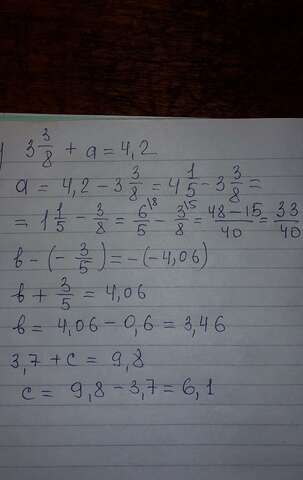 ) 3 3/8 + a = 4,2
a = 4,2 - 3 3/8 = 4 1/5 - 3 3/8 =
= 1 1/5 - 3/8 = 6\8/5 - 3\5/8 = 48-15/40 = 33/40
в - (- 3/5) = -(-4,06)
в + 3/5 = 4,06
в = 4,06 - 0,6 = 3,46
3,7 + c = 9,8
c = 9,8 - 3,7 = 6,1